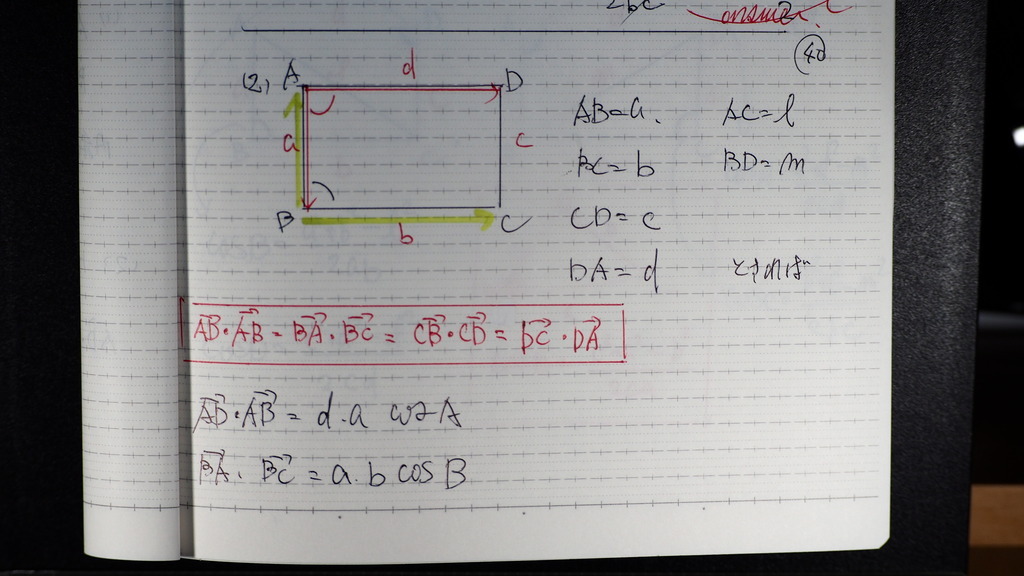 2bc answer.
40
(2) A d D
AB=a. AC=l
a c
BC=b BD=m
B b C
CD=c
DA=d とすれば
AD・AB=BA・BC=CB・CD=DC・DA
AD・AB=d.a cos A
BA.BC=a.b cos B